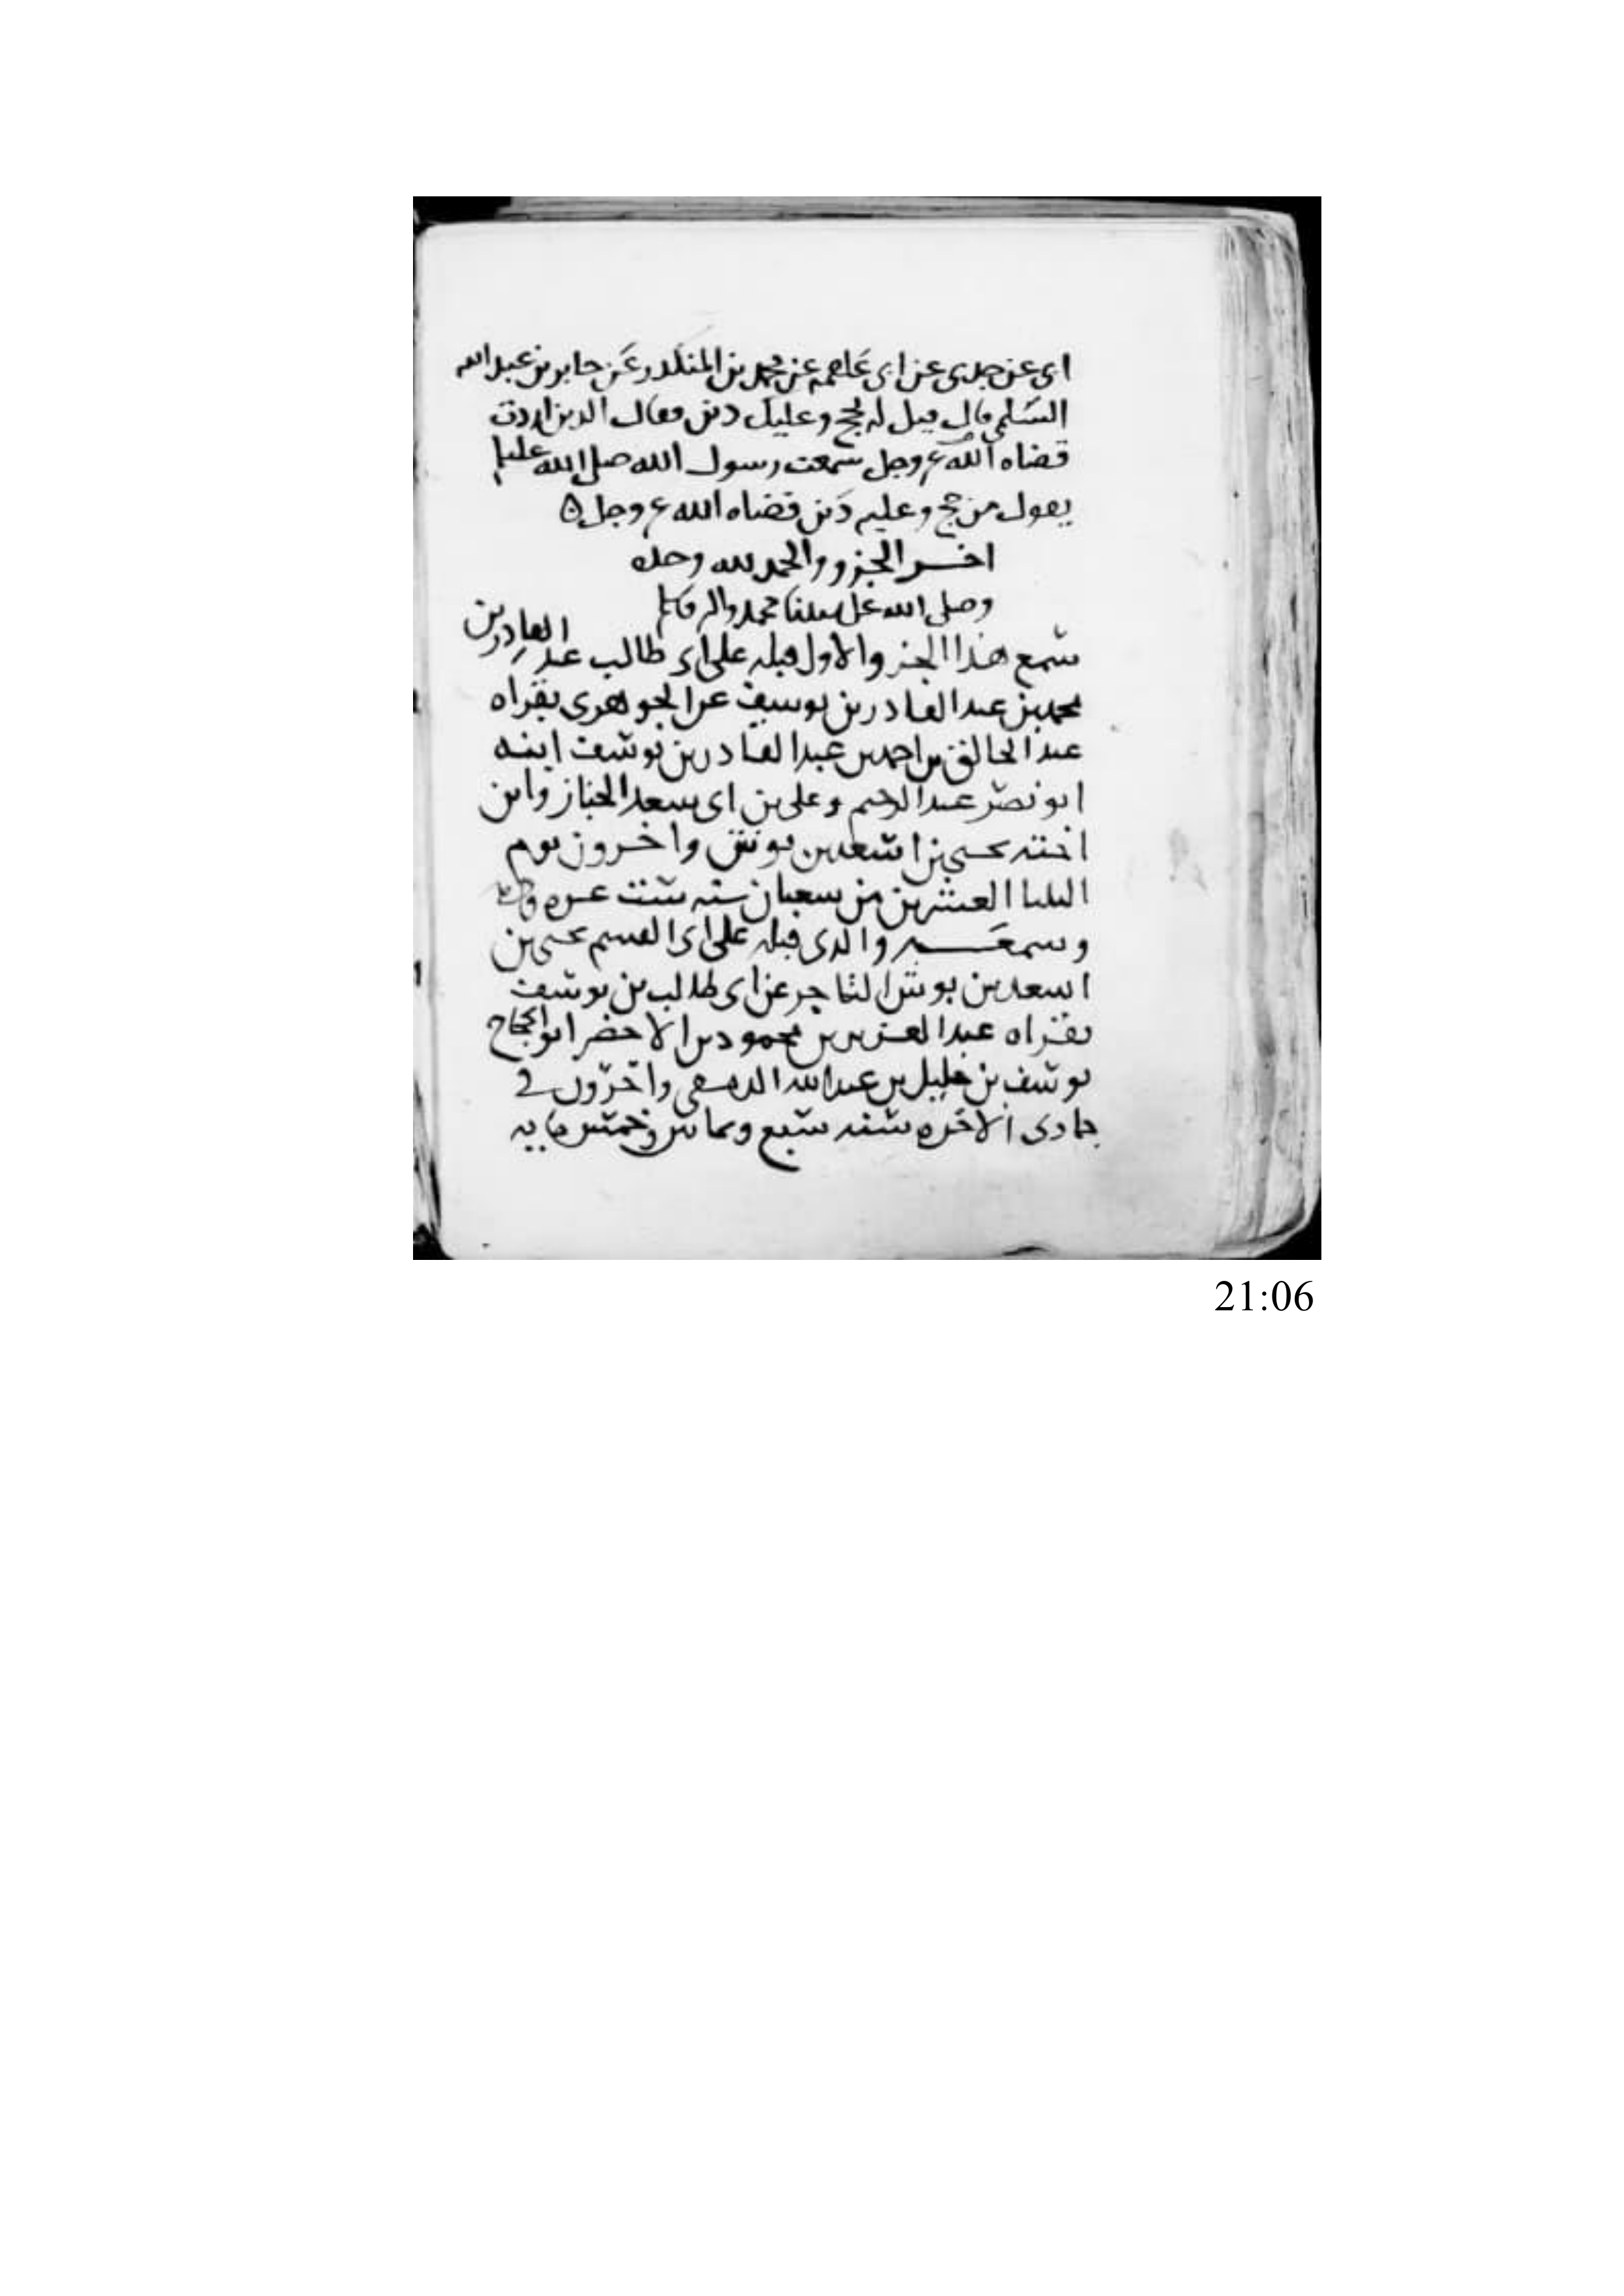 ابى عن جدى عن ابى عاصم عن محمد بن المنكدر عن جابر بن عبد الله
السلمى قال قيل له تحج وعليك دين فقال الدين اردت
قضاه الله عز وجل سمعت رسول الله صلى الله عليه
يقول من حج وعليه دين قضاه الله عز وجل ه
اخــر الجزو والحمد لله وحده
وصلى الله على سيدنا محمد واله
سمع هذا الجز والاول قبله على ابى طالب عبد القادر بن
محمد بن عبد القادر بن يوسف عن الجوهرى بقراه
عبد الخالق بن احمد بن عبد القادر بن يوسف ابنه
ابو نصر عبد الرحيم وعلى بن ابى سعد الخباز وابن
اخته يحيى بن اسعد بن بوش واخرون يوم
الثلثا العشرين من شعبان سنه ست عشره
وسمعــه والذى قبله على ابى القسم يحيى بن
اسعد بن بوش التاجر عن ابى طالب بن يوسف
بقراه عبد العزيز بن محمود بن الاخضر ابو الحجاج
يوسف بن خليل بن عبد الله الدمشقى واخرون فى
جمادى الاخره سنه سبع وثمانين وخمس مايه
21:06